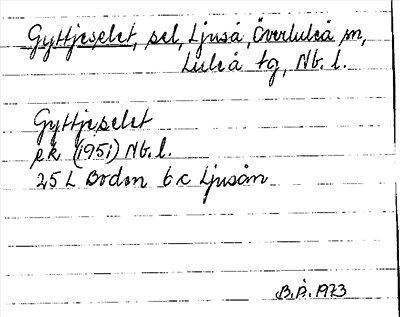 Gyttjeselet, sel, Ljuså, Överluleå sn,
Luleå tg, Nb. l.
Gyttjeselet
ek (1951) Nb. l.
25 L Boden 6 c Ljusån
B.Å. 1973